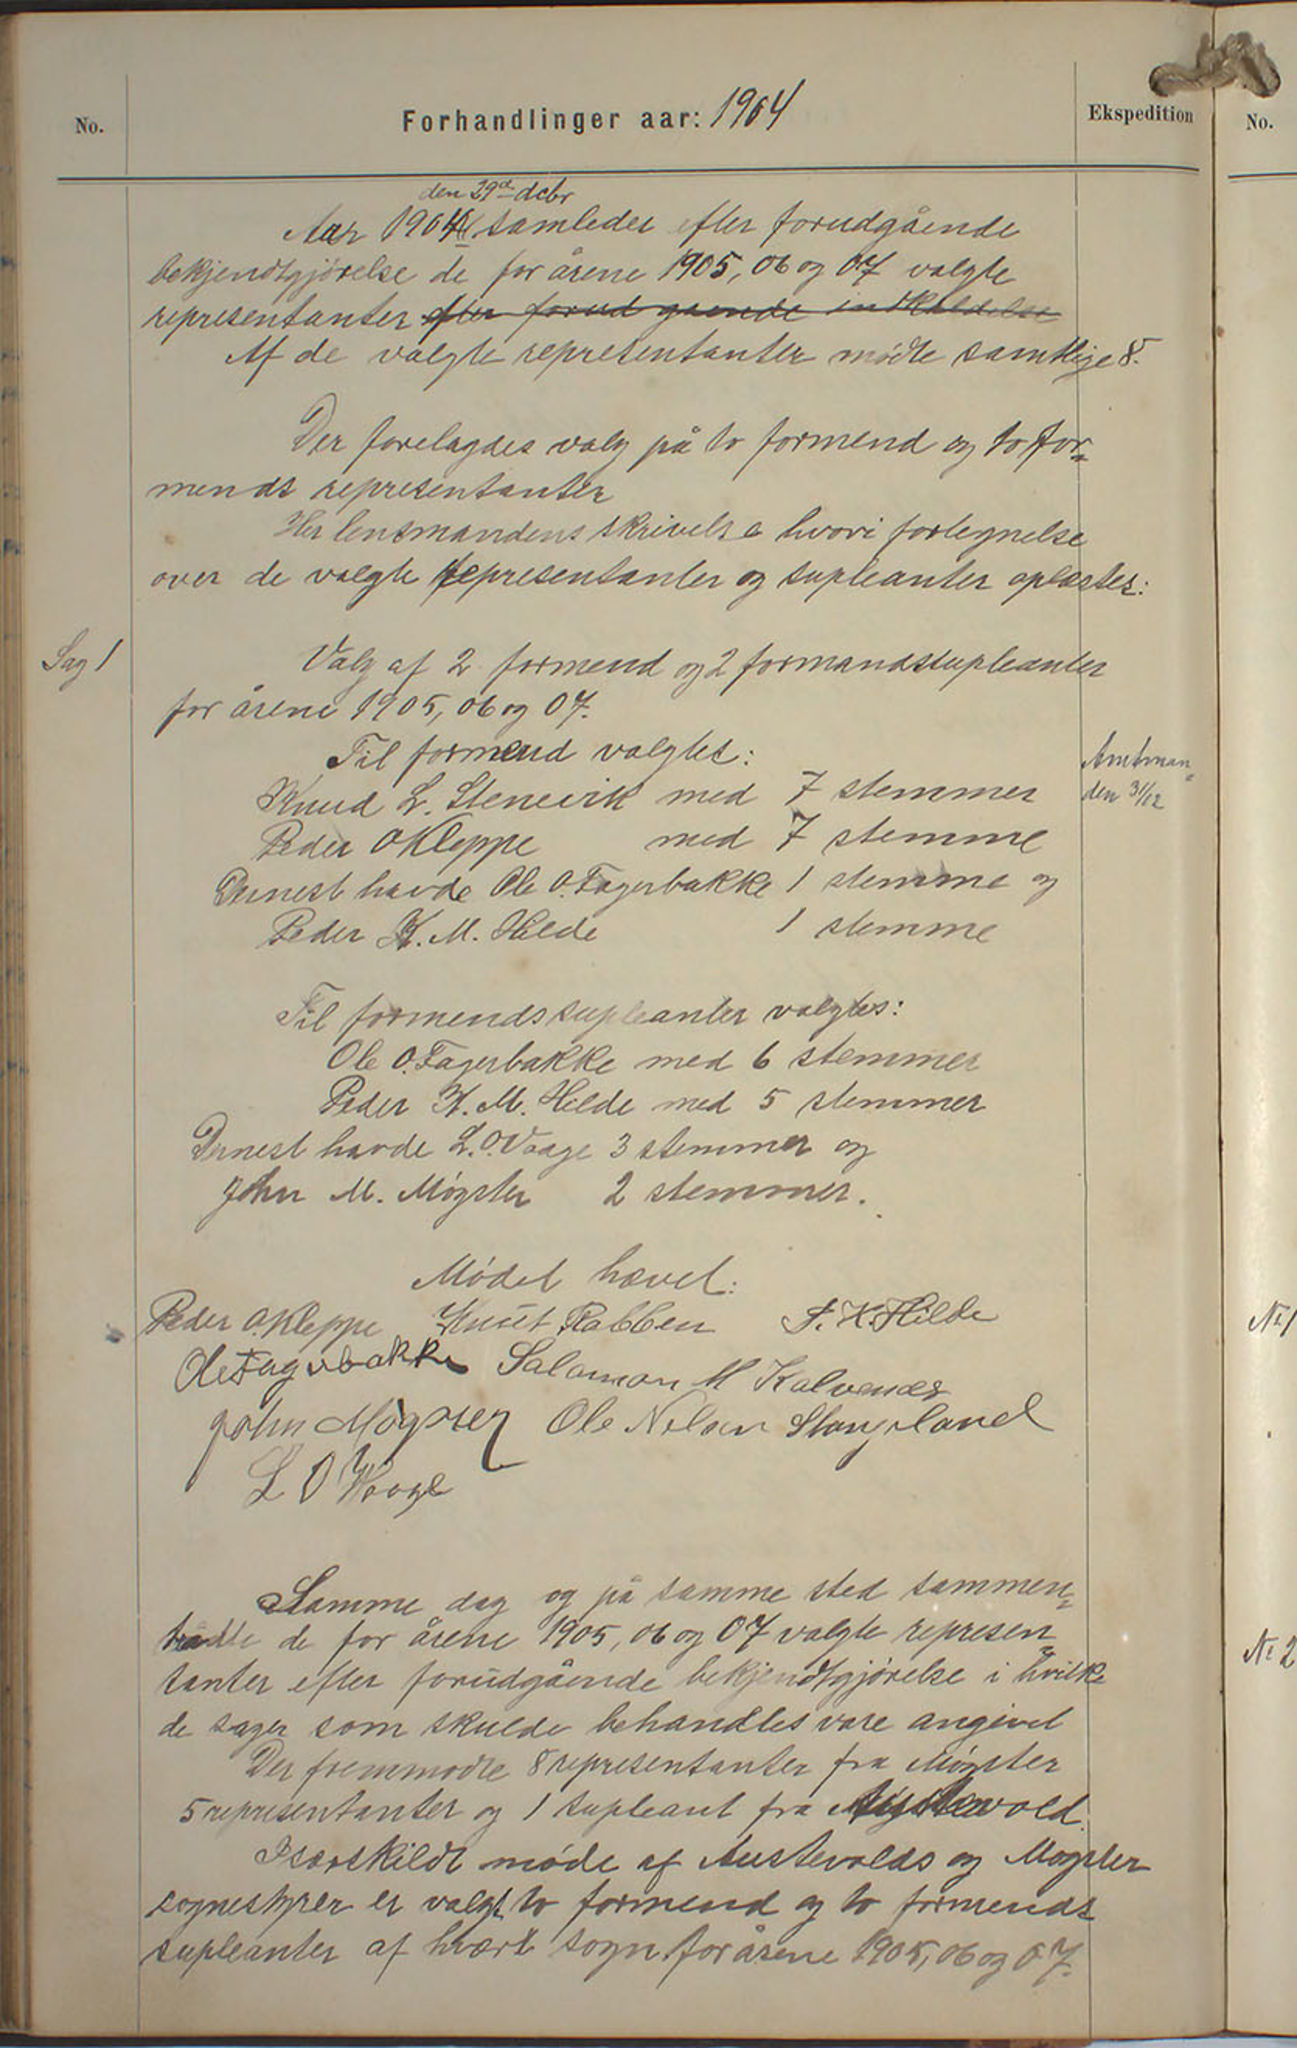 No.
Forhandlinger aar: 1904
Ekspedition
No.
den 29de debr
Aar 1904 samledes efter forudgående
bekjendtgjørelse de for årene 1905, 06 og 07 valgte
representanter efter forudgaende indkaldelse
Af de valgte representanter mødte samtlige 8.
Der forelagdes valg på to formend og to for=
mends representanter
Her lensmandens skrivelse hvori fortegnelse
over de valgte representanter og supleanter oplæstes:
Sag 1
Valg af 2 formend og 2 formandssupleanter
for årene 1905, 06 og 07.
Til formend valgtes:
Knud L. Stenevik med 7 stemmer
Amtman=
den 31/12
Peder O Kleppe med 7 stemme
Dernest havde Ole O. Fagerbakke 1 stemme og
Peder K. M. Hilde 1 stemme
Til formendssupleanter valgtes:
Ole O. Fagerbakke med 6 stemmer
Peder K. M. Hilde med 5 stemmer
Dernest havde L. O. Vaage 3 stemmer og
John M. Møgster 2 stemmer.
Mødet hævet:
Peder O. Kleppe Knut Rabben P. K. Hilde
Ole Fagerbakke Salamon M Kalvenes
John Møgster Ole Nelsen Stangeland
L O Vaage
Samme dag og på samme sted sammen=
trådte de for årene 1905, 06 og 07 valgte represen=
tanter efter forudgående bekjendtgjørelse i hvilke
de sager som skulde behandles vare angivet
Der fremmødte 8 representanter fra Møgster
5 representanter og 1 supleant fra Austevold.
I særskildt møde af Austevolds og Møgster
sognestyrer er valgt to formend og to formends
supleanter af hvært sogn for årene 1905, 06 og 07.
No 1
No 2